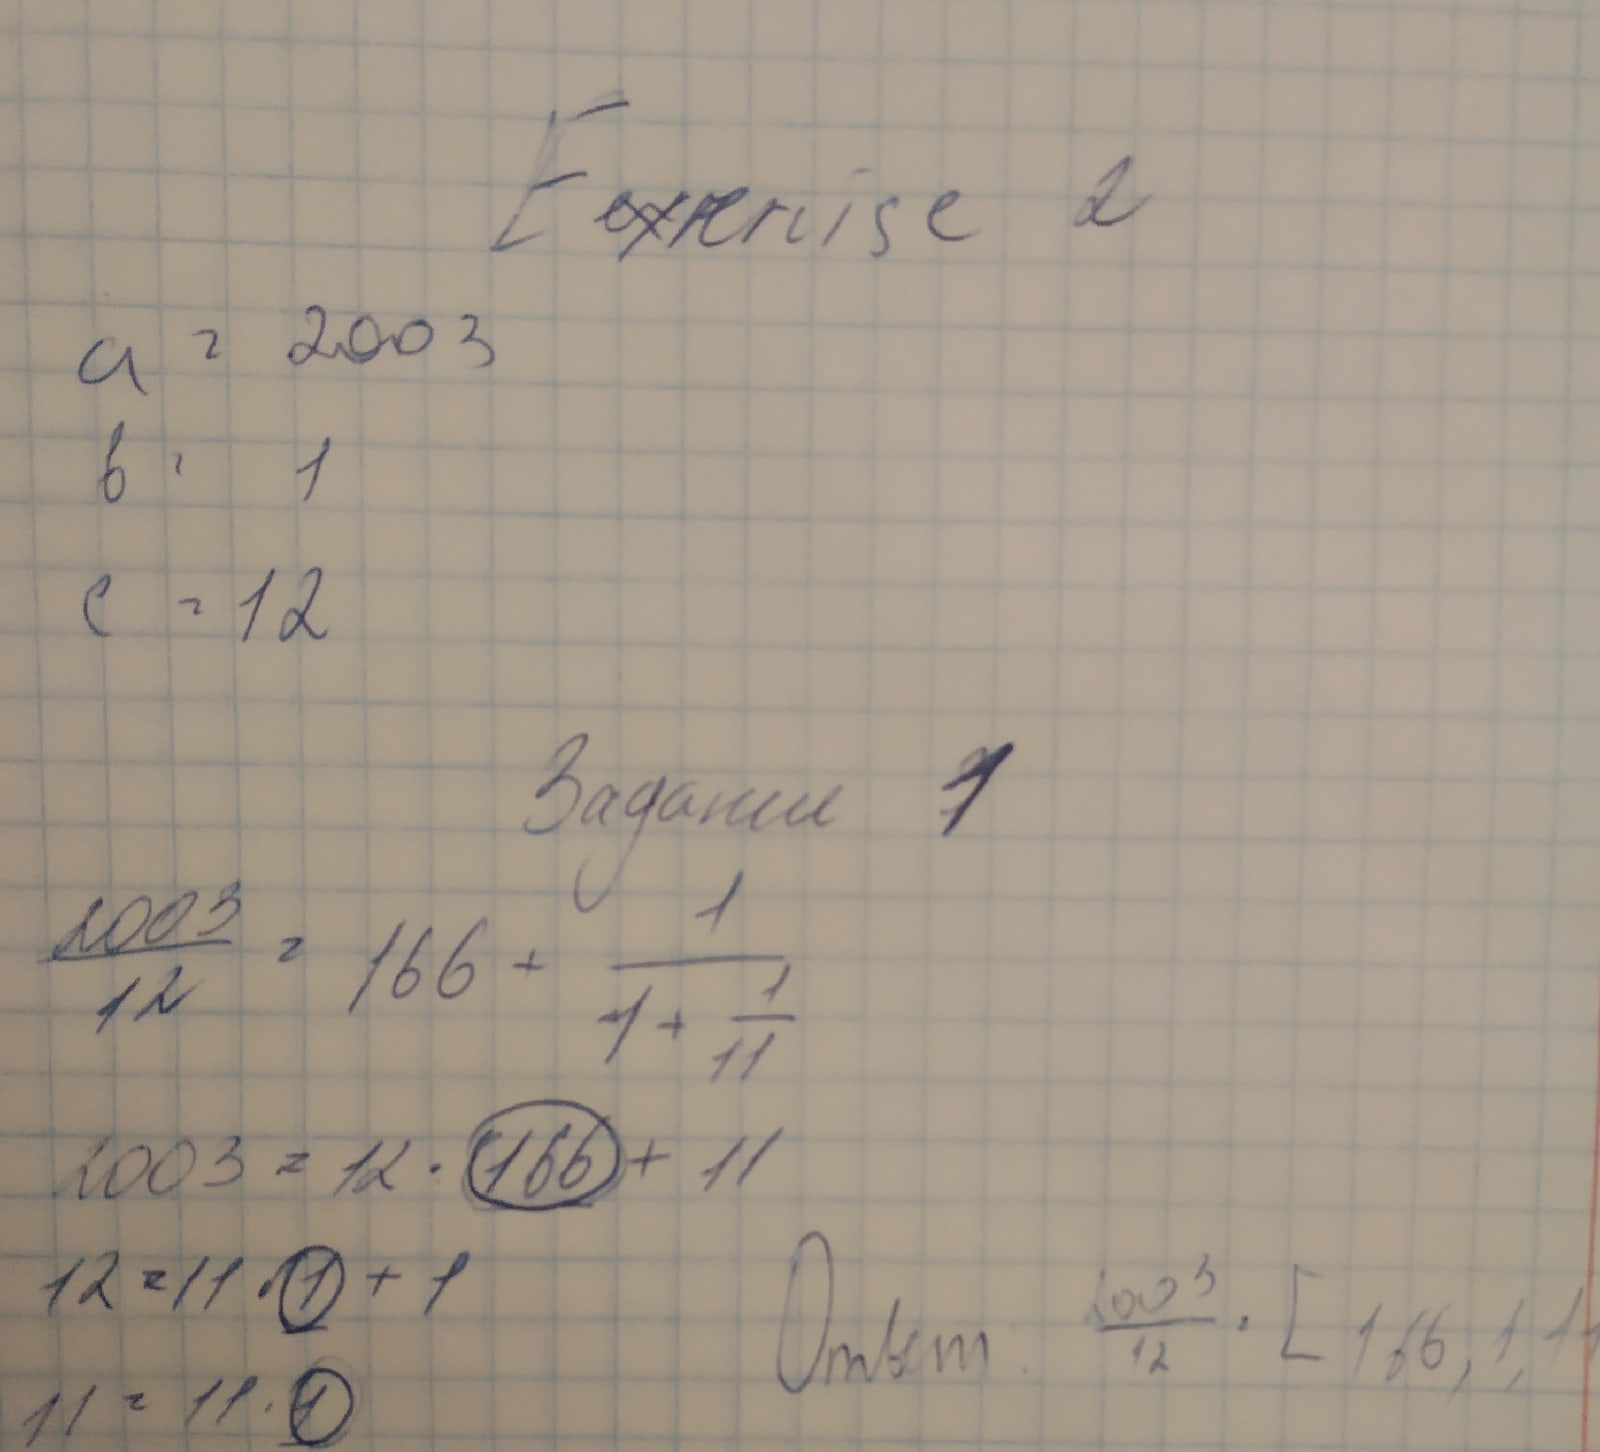 Exercise 2
a = 2003
b = 1
c = 12
Задание 1
2003/12 = 166 + 1/(1 + 1/11)
2003 = 12 · 166 + 11
12 = 11 · 1 + 1
Ответ: 2003/12 = [166, 1, 11
11 = 11 · 1